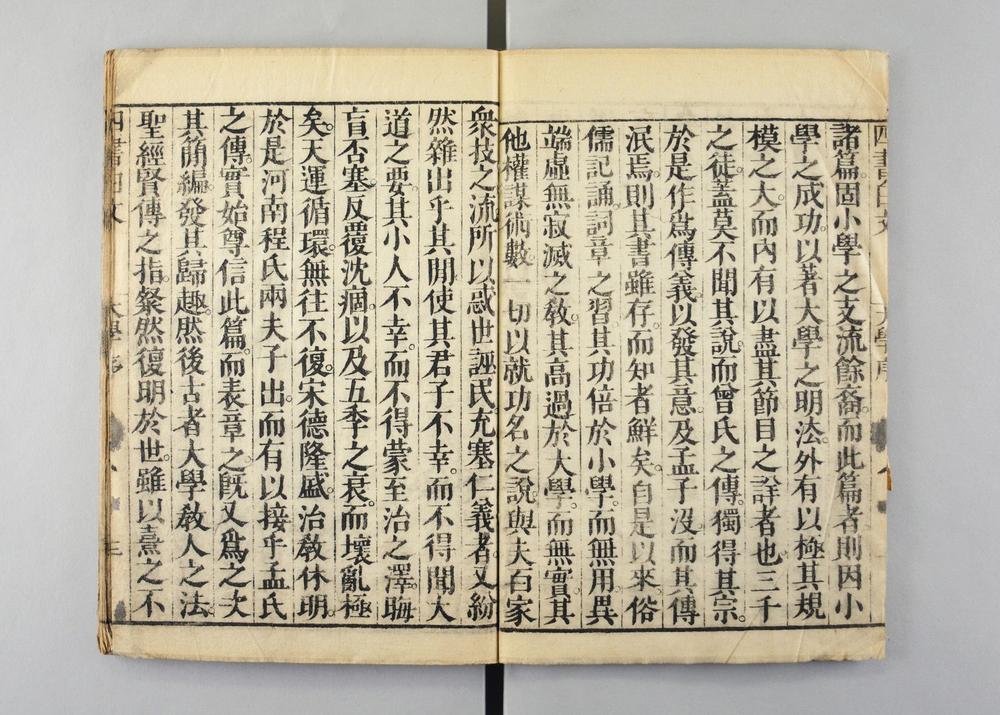 諸篇。固小學之支流餘裔。而此篇者則因小
學之成功。以著大學之明法。外有以極其規
模之大。而內有以盡其節目之詳者也。三千
之徒。蓋莫不聞其說。而曾氏之傳。獨得其宗。
於是作爲傳義。以發其意。及孟子沒。而其傳
泯焉。則其書雖存。而知者鮮矣。自是以來。俗
儒記誦。詞章之習。其功倍於小學。而無用。異
端虛無寂滅之敎。其高過於大學。而無實。其
他權謀術數。一切以就功名之說。與夫百家
衆技之流。所以惑世誣民。充塞仁義者。又紛
然雜出乎其閒。使其君子不幸。而不得聞大
道之要。其小人不幸。而不得蒙至治之澤。晦
盲否塞。反覆沈痼。以及五季之衰。而壞亂極
矣。天運循環。無往不復。宋德隆盛。治敎休明。
於是河南程氏兩夫子出。而有以接乎孟氏
之傳。實始尊信此篇。而表章之。旣又爲之次
其簡編。發其歸趣。然後古者大學敎人之法。
聖經賢傳之指。粲然復明於世。雖以熹之不